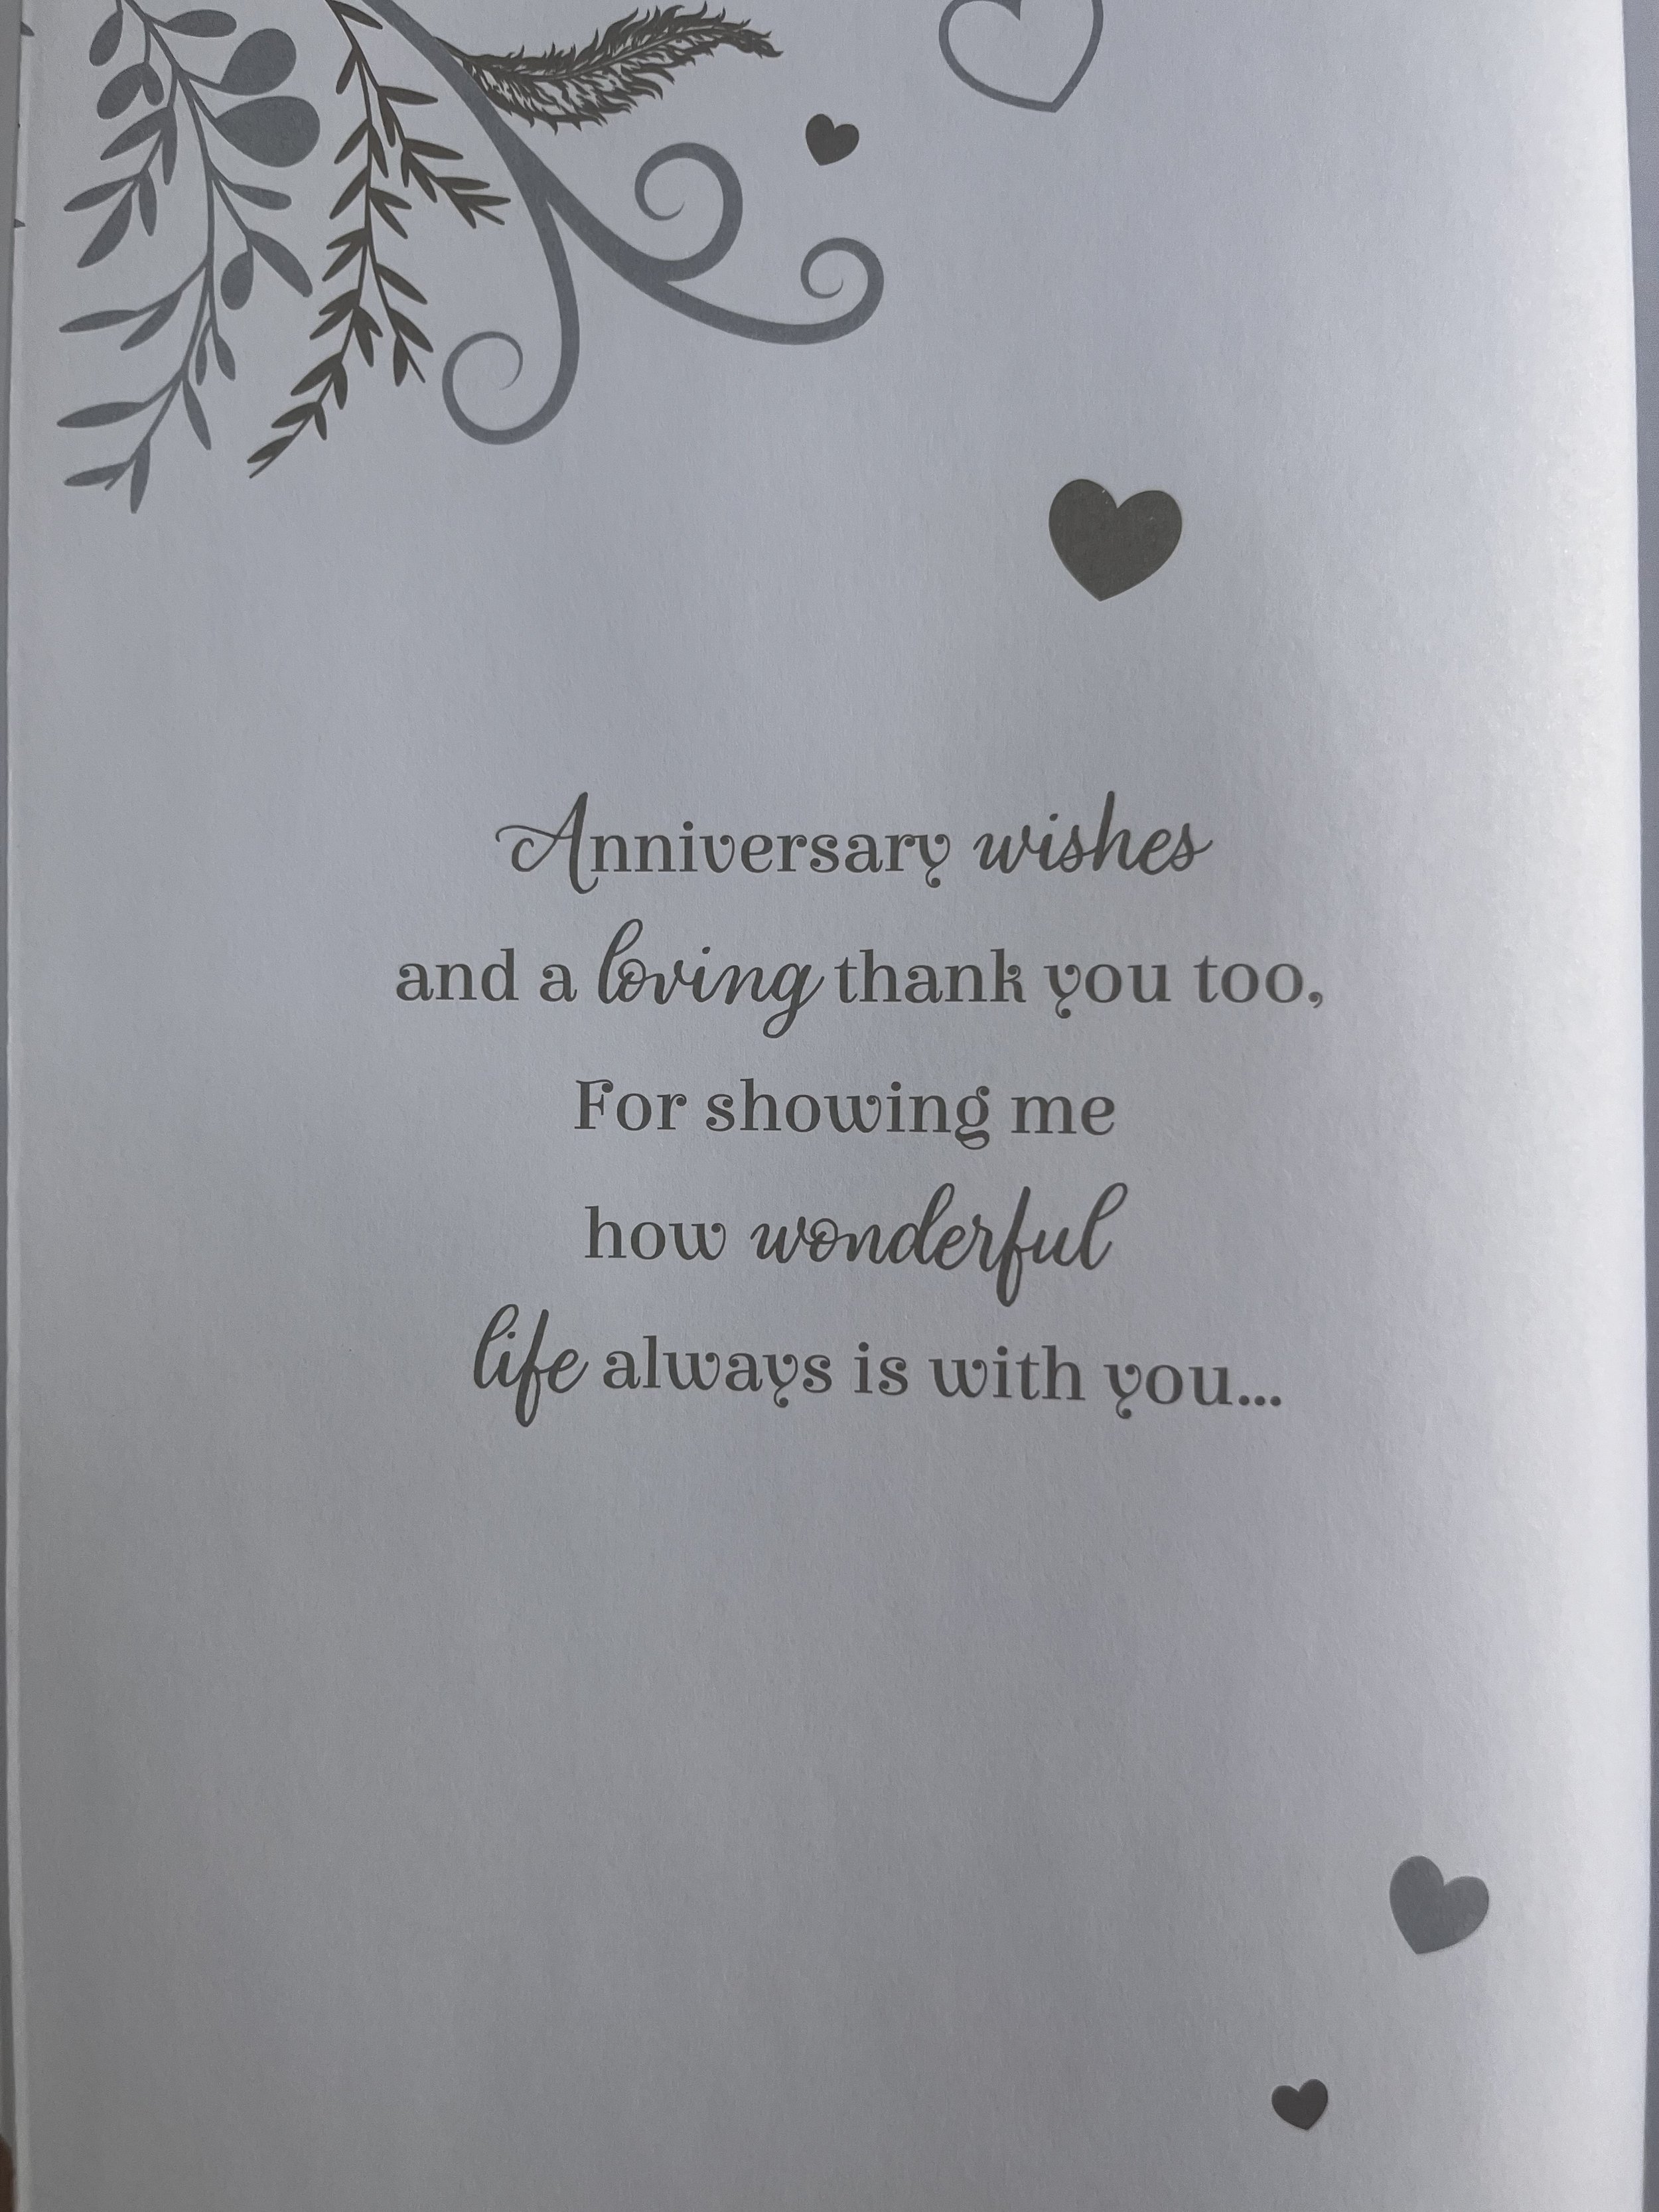 Anniversary wishes
and a loving thank you too,
For showing me
how wonderful
life always is with you...